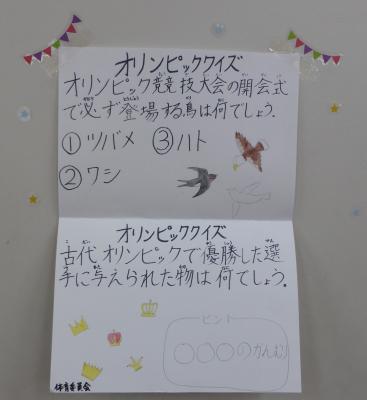 オリンピッククイズ
オリンピック競技大会の開会式
で必ず登場する鳥は何でしょう。
①ツバメ ③ハト
②ワシ
オリンピッククイズ
古代オリンピックで優勝した選
手に与えられた物は何でしょう。
ヒント
○○○のかんむり
体育委員会